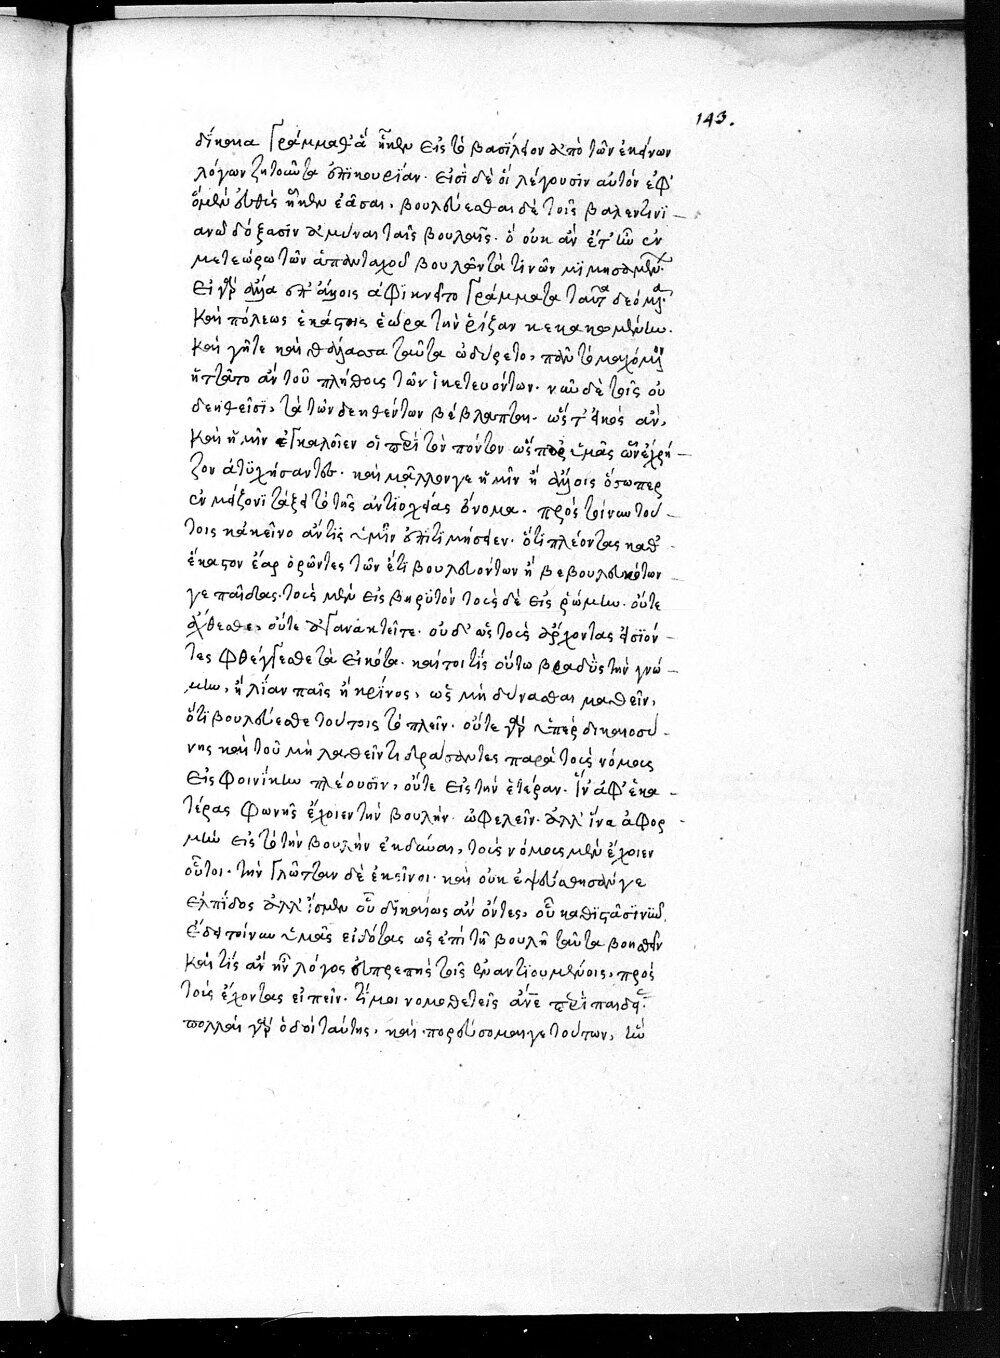 143.
δίκαια γράμμαθ' ἃ ἧκεν εἰς τὸ βασίλειον ἀπὸ τῶν ἐκείνων
λόγων ζητοῦντα ἐπικουρίαν. εἰσὶ δὲ οἱ λέγουσιν αὐτὸν ἐφ'
ὅμὲν εὐθὺς ἧκεν ἐᾶσαι, βουλεύεσθαι δὲ τοῖς βαλεντινι
ανοῦ δόξασιν ἀμῦναι ταῖς βουλαῖς. ὁ οὐκ ἂν ἔτ' ἦν ἐν
μετεώρω τῶν ἁπανταχοῦ βουλῶν τά τινῶν μιμησαμένων
εἰ γὰρ ἀλλα ἐπ' ἄλλοις ἀφικνεῖτο γράμματα ταῦτα δεόμενα
καὶ πόλεως ἑκάστοις ἑώρα τὴν ῥίζαν κεκακωμένην.
καὶ γῆτε καὶ θάλασσα ταῦτα ὠδύρετο, πᾶν τὸ μαχόμενον
ἡττᾶτο ἂν τοῦ πλήθους τῶν ἱκετευόντων. νῦν δὲ ταῖς οὐ
δεηθείσι, τὰ τῶν δεηθέντων βέβλαπται. ὥστ' εἰκὸς ἂν,
καὶ ἡμῖν ἐγκαλοῖεν οἱ περὶ τὸν πόντον ὥσπερ ὑμᾶς ὧν ἔχρη
ζον ἀτυχήσαντες. καὶ μᾶλλόν γε ἡμῖν ἢ ἄλλοις ὅσωπερ
ἐν μείζονι τάξει τὸ τῆς ἀντιοχείας ὄνομα. πρὸς τοίνυν τού
τοις κἀκεῖνο ἄν τις ὑμῖν ἐπιτιμήσειεν. ὅτι πλέοντας καθ'
ἕκαστον ἔαρ ὁρῶντες τῶν ἔτι βουλευόντων ἢ βεβουλευκότων
γε παῖδας. τοὺς μὲν εἰς βηρυτὸν τοὺς δὲ εἰς ῥώμην. οὔτε
ἄχθεσθε, οὔτε ἀγανακτεῖτε. οὐδ' ὡς τοὺς ἄρχοντας εἰσιόν
τες φθέγγεσθε τὰ εἰκότα. καίτοι τίς οὕτω βραδὺς τὴν γνώ
μην, ἢ λίαν παῖς ἢ κρίνος, ὡς μὴ δύνασθαι μαθεῖν,
ὅτι βουλεύεσθε τούτοις τὸ πλεῖν. οὔτε γὰρ ὑπὲρ δικαιοσύ
νης καὶ τοῦ μὴ λαθεῖν τι δράσαντες παρὰ τοὺς νόμους
εἰς φοινίκην πλέουσιν, οὔτε εἰς τὴν ἑτέραν. ἵν' ἀφ' ἑκα
τέρας φωνῆς ἔχοιεν τὴν βουλὴν ὠφελεῖν. ἀλλ' ἵνα ἀφορ
μὴν εἰς τὸ τὴν βουλὴν ἐκδῦναι, τοὺς νόμους μὲν ἔχοιεν
οὗτοι. τὴν γλῶτταν δὲ ἐκεῖνοι. καὶ οὐκ ἐψεύσθησάν γε
ἐλπίδος ἀλλ' ἴσμεν οὗ δικαίως ἂν ὄντες, οὗ καθιστᾶσι νῦν.
ἔδει τοίνυν ὑμᾶς εἰδότας ὡς ἐπὶ τῆ βουλῆ ταῦτα βοηθεῖν
καὶ τίς ἂν ἦν λόγος εὐπρεπὴς τοῖς ἐναντιουμένοις, πρὸς
τοὺς ἔχοντας εἰπεῖν. τί μοι νομοθετεῖς περὶ παιδὸς
πολλαὶ γὰρ ὁδοὶ ταύτης. καὶ πορεύσομαί γε τούτων, ἣν